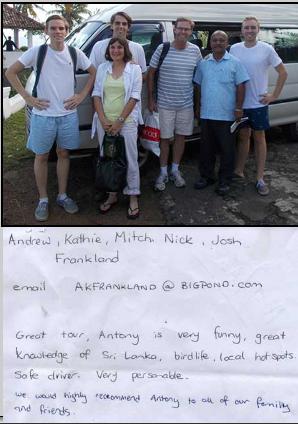 Andrew, Kathie, Mitch, Nick, Josh
Frankland
email AKFRANKLAND@BIGPOND.com
Great tour, Antony is very funny, great
knowledge of Sri Lanka, birdlife, local hotspots.
Safe driver. Very personable.
we would highly recommend Antony to all of our family
and friends.